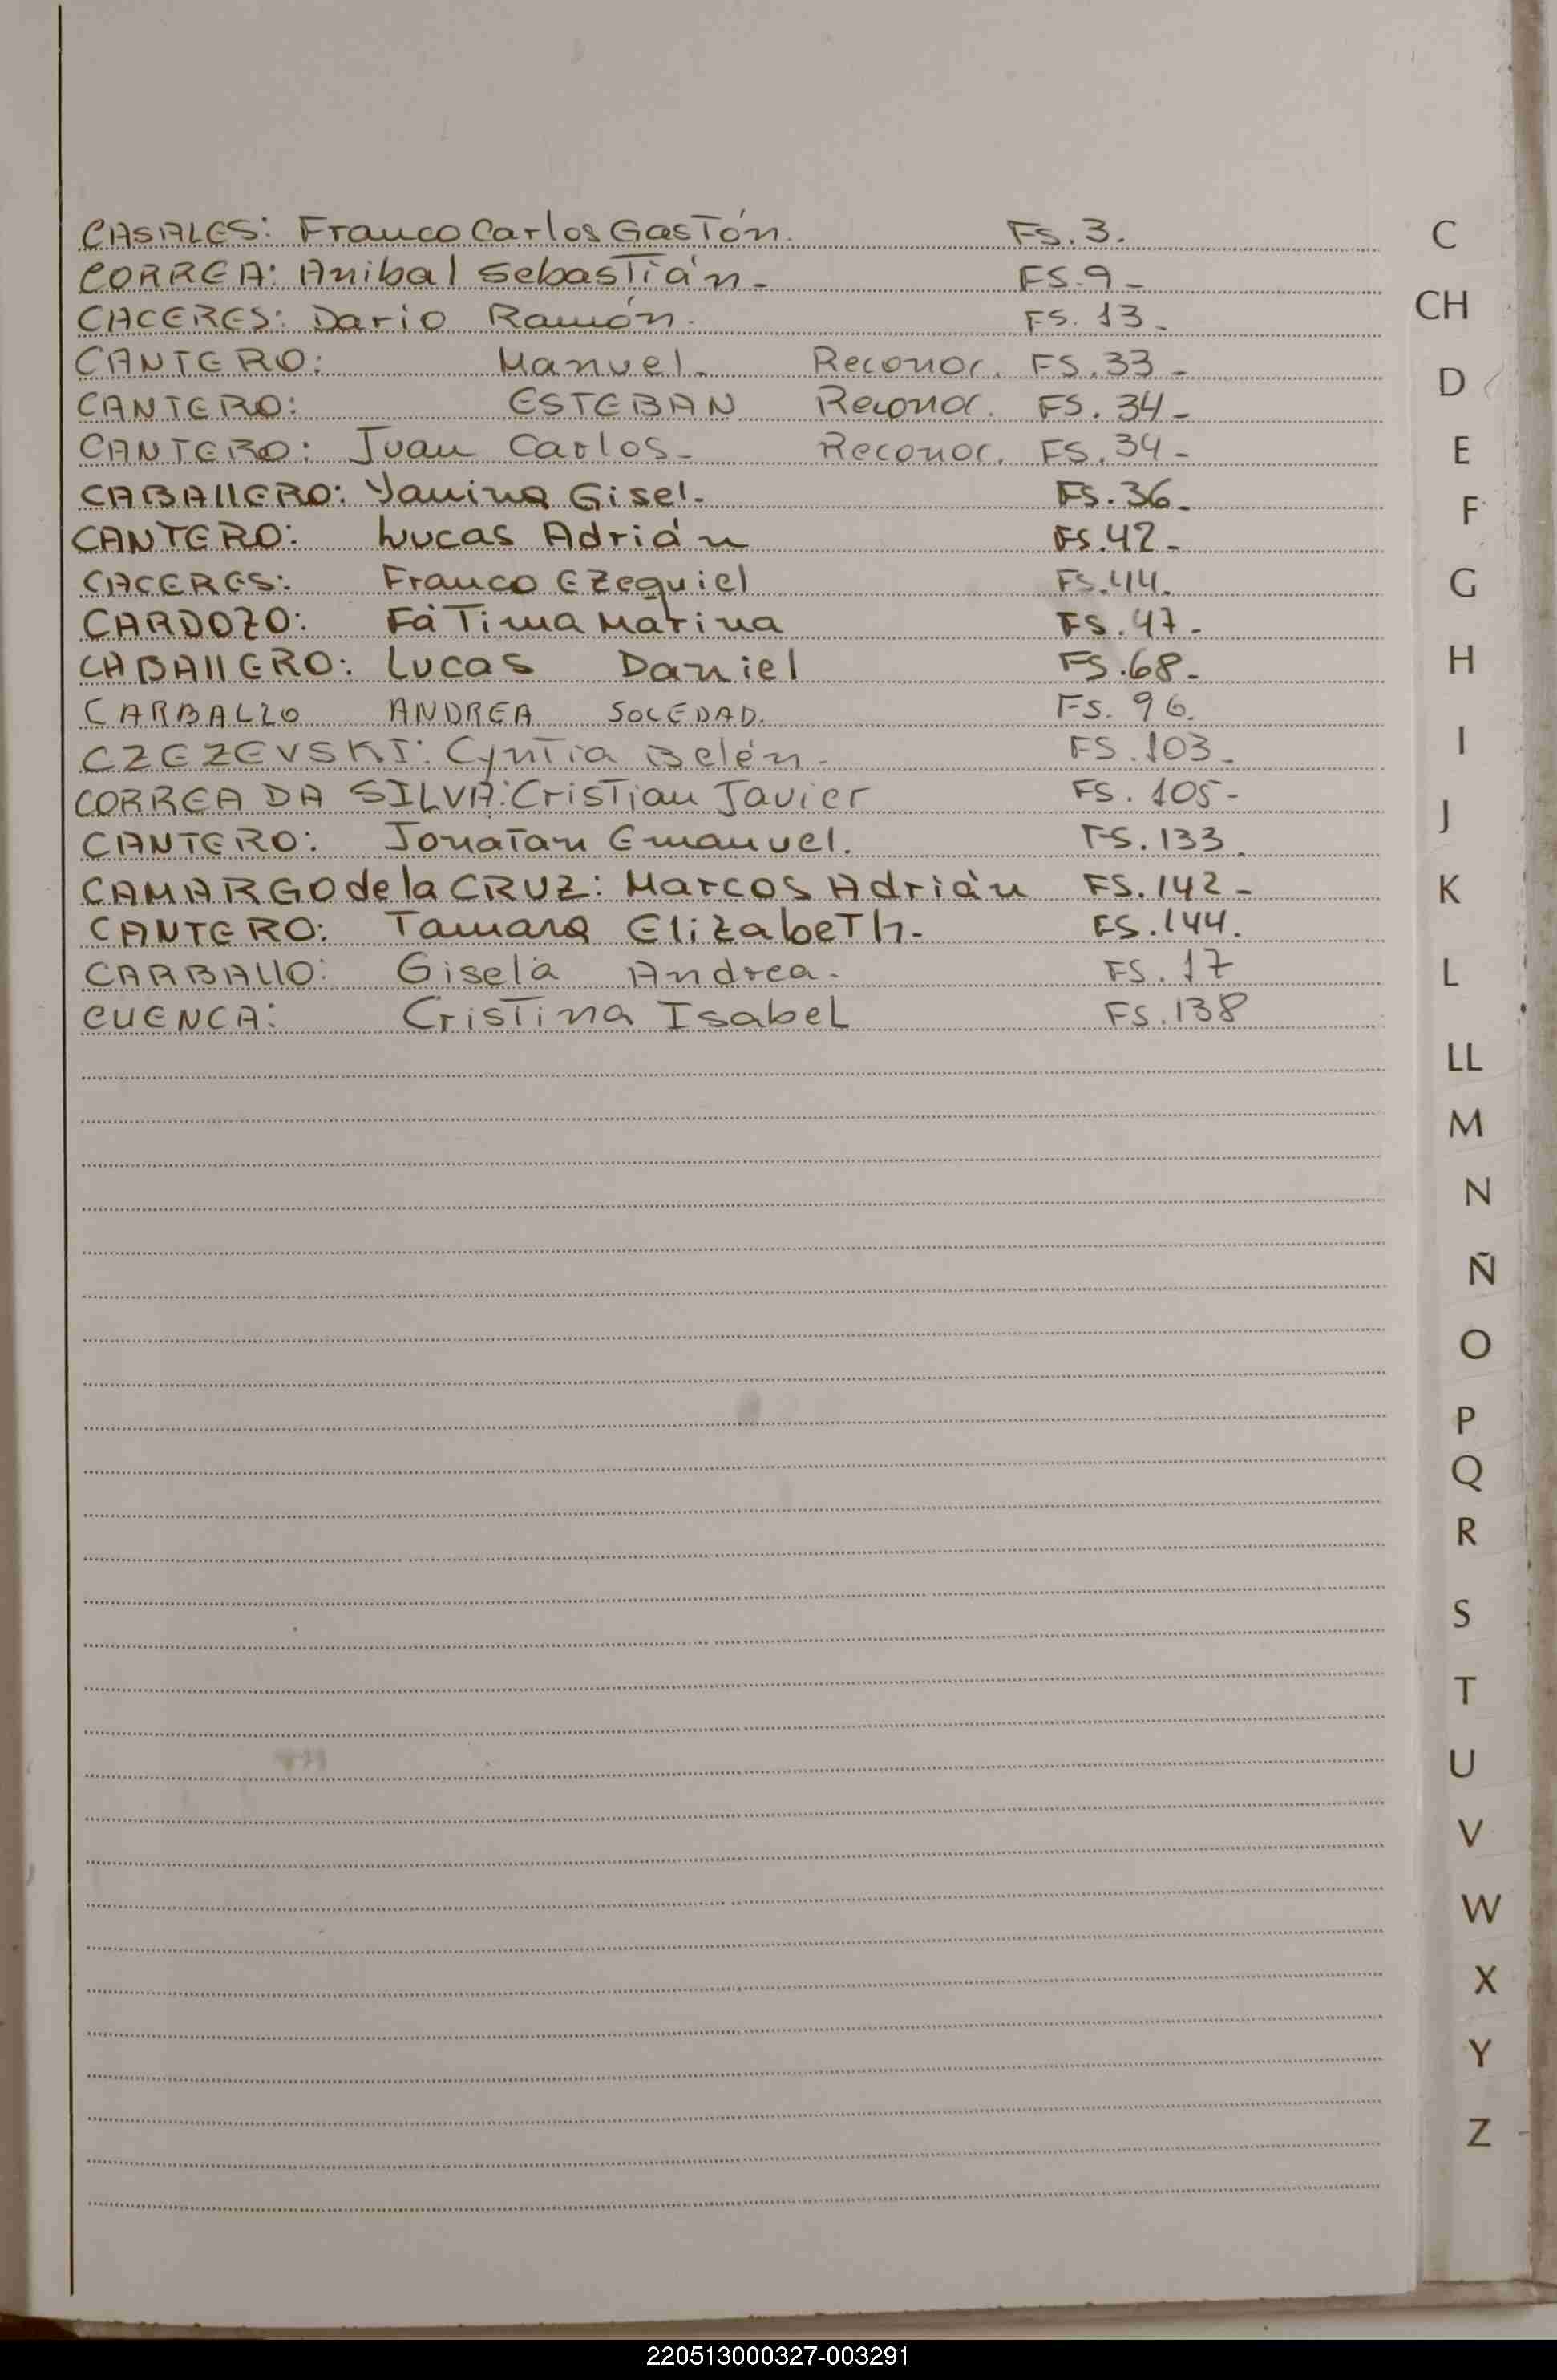 CASALES: Franco Carlos Gastón. Fs. 3.
CORREA: Anibal Sebastián - FS. 9 -
CACERES: Dario Ramón. FS. 13 -
CANTERO: Manuel - Reconoc. FS. 33 -
CANTERO: ESTEBAN Reconoc. FS. 34 -
CANTERO: Juan Carlos - Reconoc. FS. 34 -
CABALLERO: Yanina Gisel - FS. 36 -
CANTERO: Lucas Adrián FS. 42 -
CACERES: Franco Ezequiel FS. 44.
CARDOZO: Fátima Marina FS. 47 -
CABALLERO: Lucas Daniel FS. 68 -
CARBALLO ANDREA SOLEDAD. Fs. 96.
CZEZEVSKI: Cyntia Belén - FS. 103 -
CORREA DA SILVA: Cristian Javier FS. 105 -
CANTERO: Jonatan Emanuel. FS. 133.
CAMARGO de la CRUZ: Marcos Adrián FS. 142 -
CANTERO: Tamara Elizabeth - FS. 144.
CARBALLO: Gisela Andrea - FS. 17
CUENCA: Cristina Isabel FS. 138
C
CH
D
E
F
G
H
I
J
K
L
LL
M
N
Ñ
O
P
Q
R
S
T
U
V
W
X
Y
Z
220513000327-003291